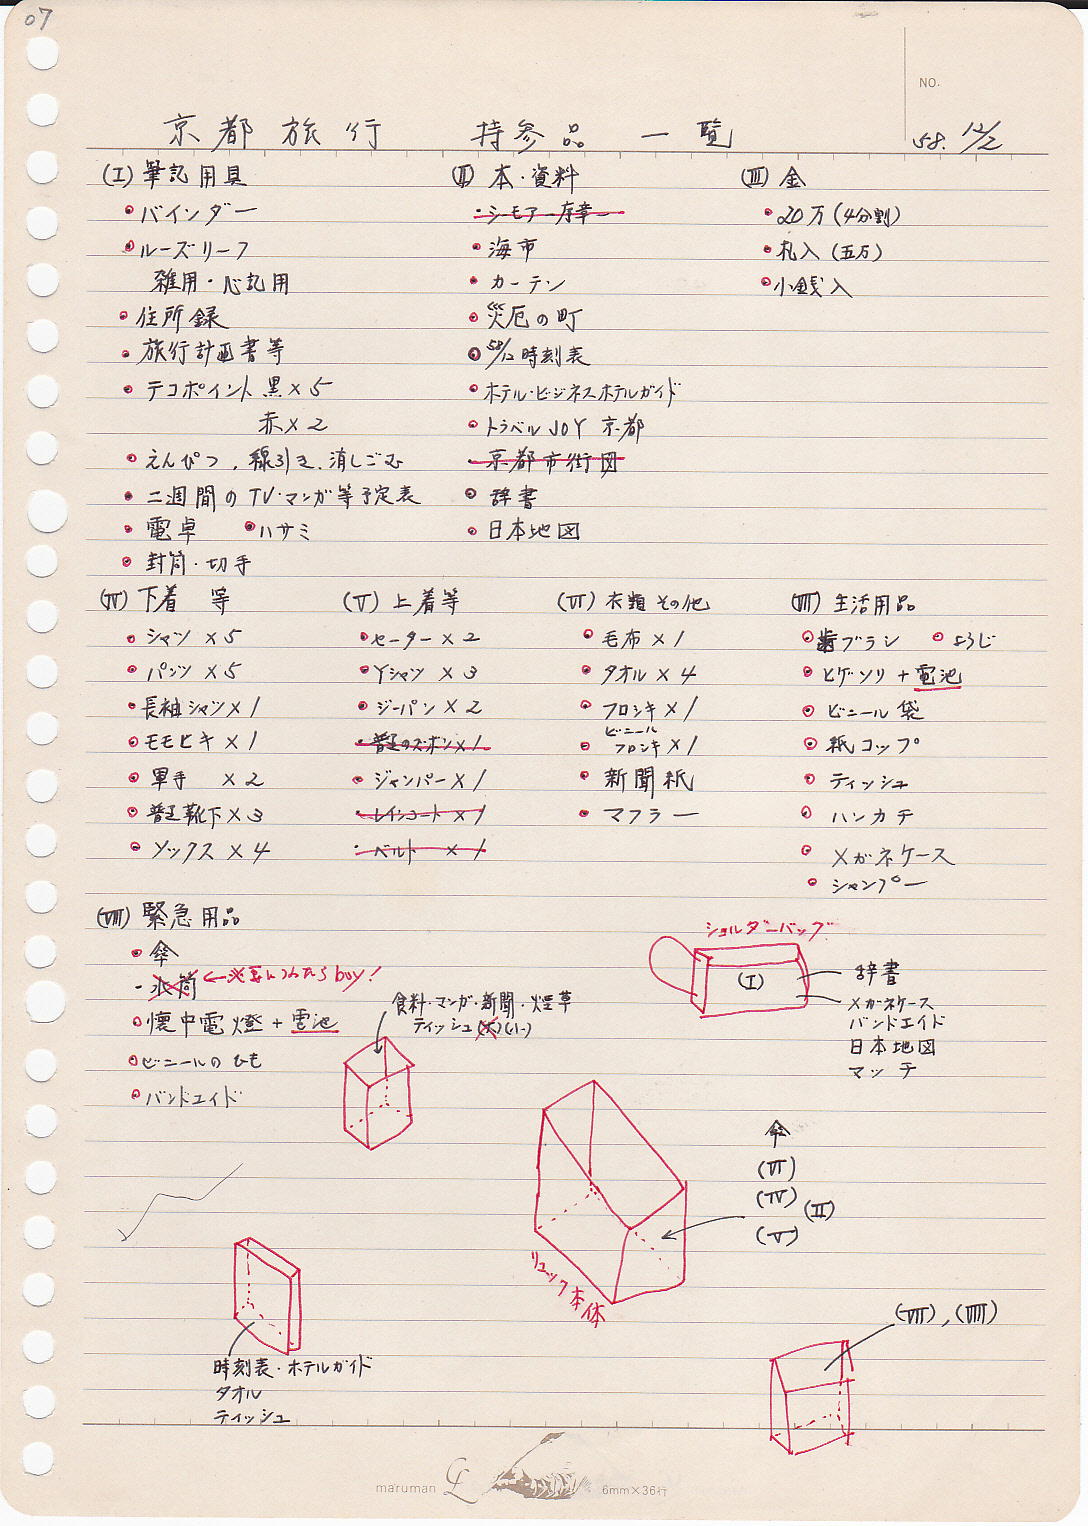 07
NO.
京都旅行 持参品 一覧
58. 12/2
(I) 筆記用具
・バインダー
・ルーズリーフ
雑用・心記用
・住所録
・旅行計画書等
・テコポイント 黒×5
赤×2
・えんぴつ、線引き、消しごむ
・二週間のTV・マンガ等予定表
・電卓 ・ハサミ
・封筒・切手
(II) 本・資料
・シーモア―序章―
・海市
・カーテン
・災厄の町
・58/12 時刻表
・ホテル・ビジネスホテルガイド
・トラベルJOY 京都
・京都市街図
・辞書
・日本地図
(III) 金
・20万(4分割)
・札入(五万)
・小銭入
(IV) 下着 等
・シャツ×5
・パンツ×5
・長袖シャツ×1
・モモヒキ×1
・軍手 ×2
・普通靴下×3
・ソックス×4
(V) 上着等
・セーター×2
・Yシャツ×3
・ジーパン×2
・普通のズボン×1
・ジャンパー×1
・レインコート×1
・ベルト ×1
(VI) 衣類その他
・毛布×1
・タオル×4
・フロシキ×1
・ビニールフロシキ×1
・新聞紙
・マフラー
(VII) 生活用品
・歯ブラシ ・ようじ
・ヒゲソリ+電池
・ビニール袋
・紙コップ
・ティッシュ
・ハンカチ
・メガネケース
・シャンプー
(VIII) 緊急用品
・傘
・水筒
boy!
・懐中電燈+電池
・ビニールのひも
・バンドエイド
食料・マンガ・新聞・煙草
ティッシュ(大)(小)
ショルダーバッグ
(I)
辞書
メガネケース
バンドエイド
日本地図
マッチ
傘
(VI)
(IV) (II)
(V)
リュック本体
時刻表・ホテルガイド
タオル
ティッシュ
(VII), (VIII)
maruman
6mm×36行